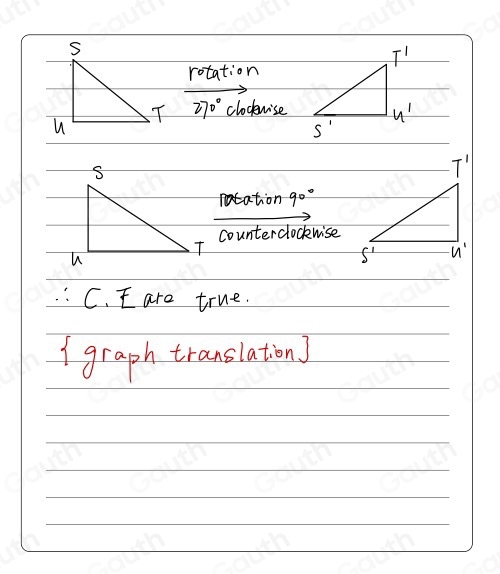 S
T'
rotation
270° clockwise
U
T
S'
U'
S
T'
rotation 90°
counterclockwise
U
T
S'
U'
∴ C. E are true.
{graph translation}